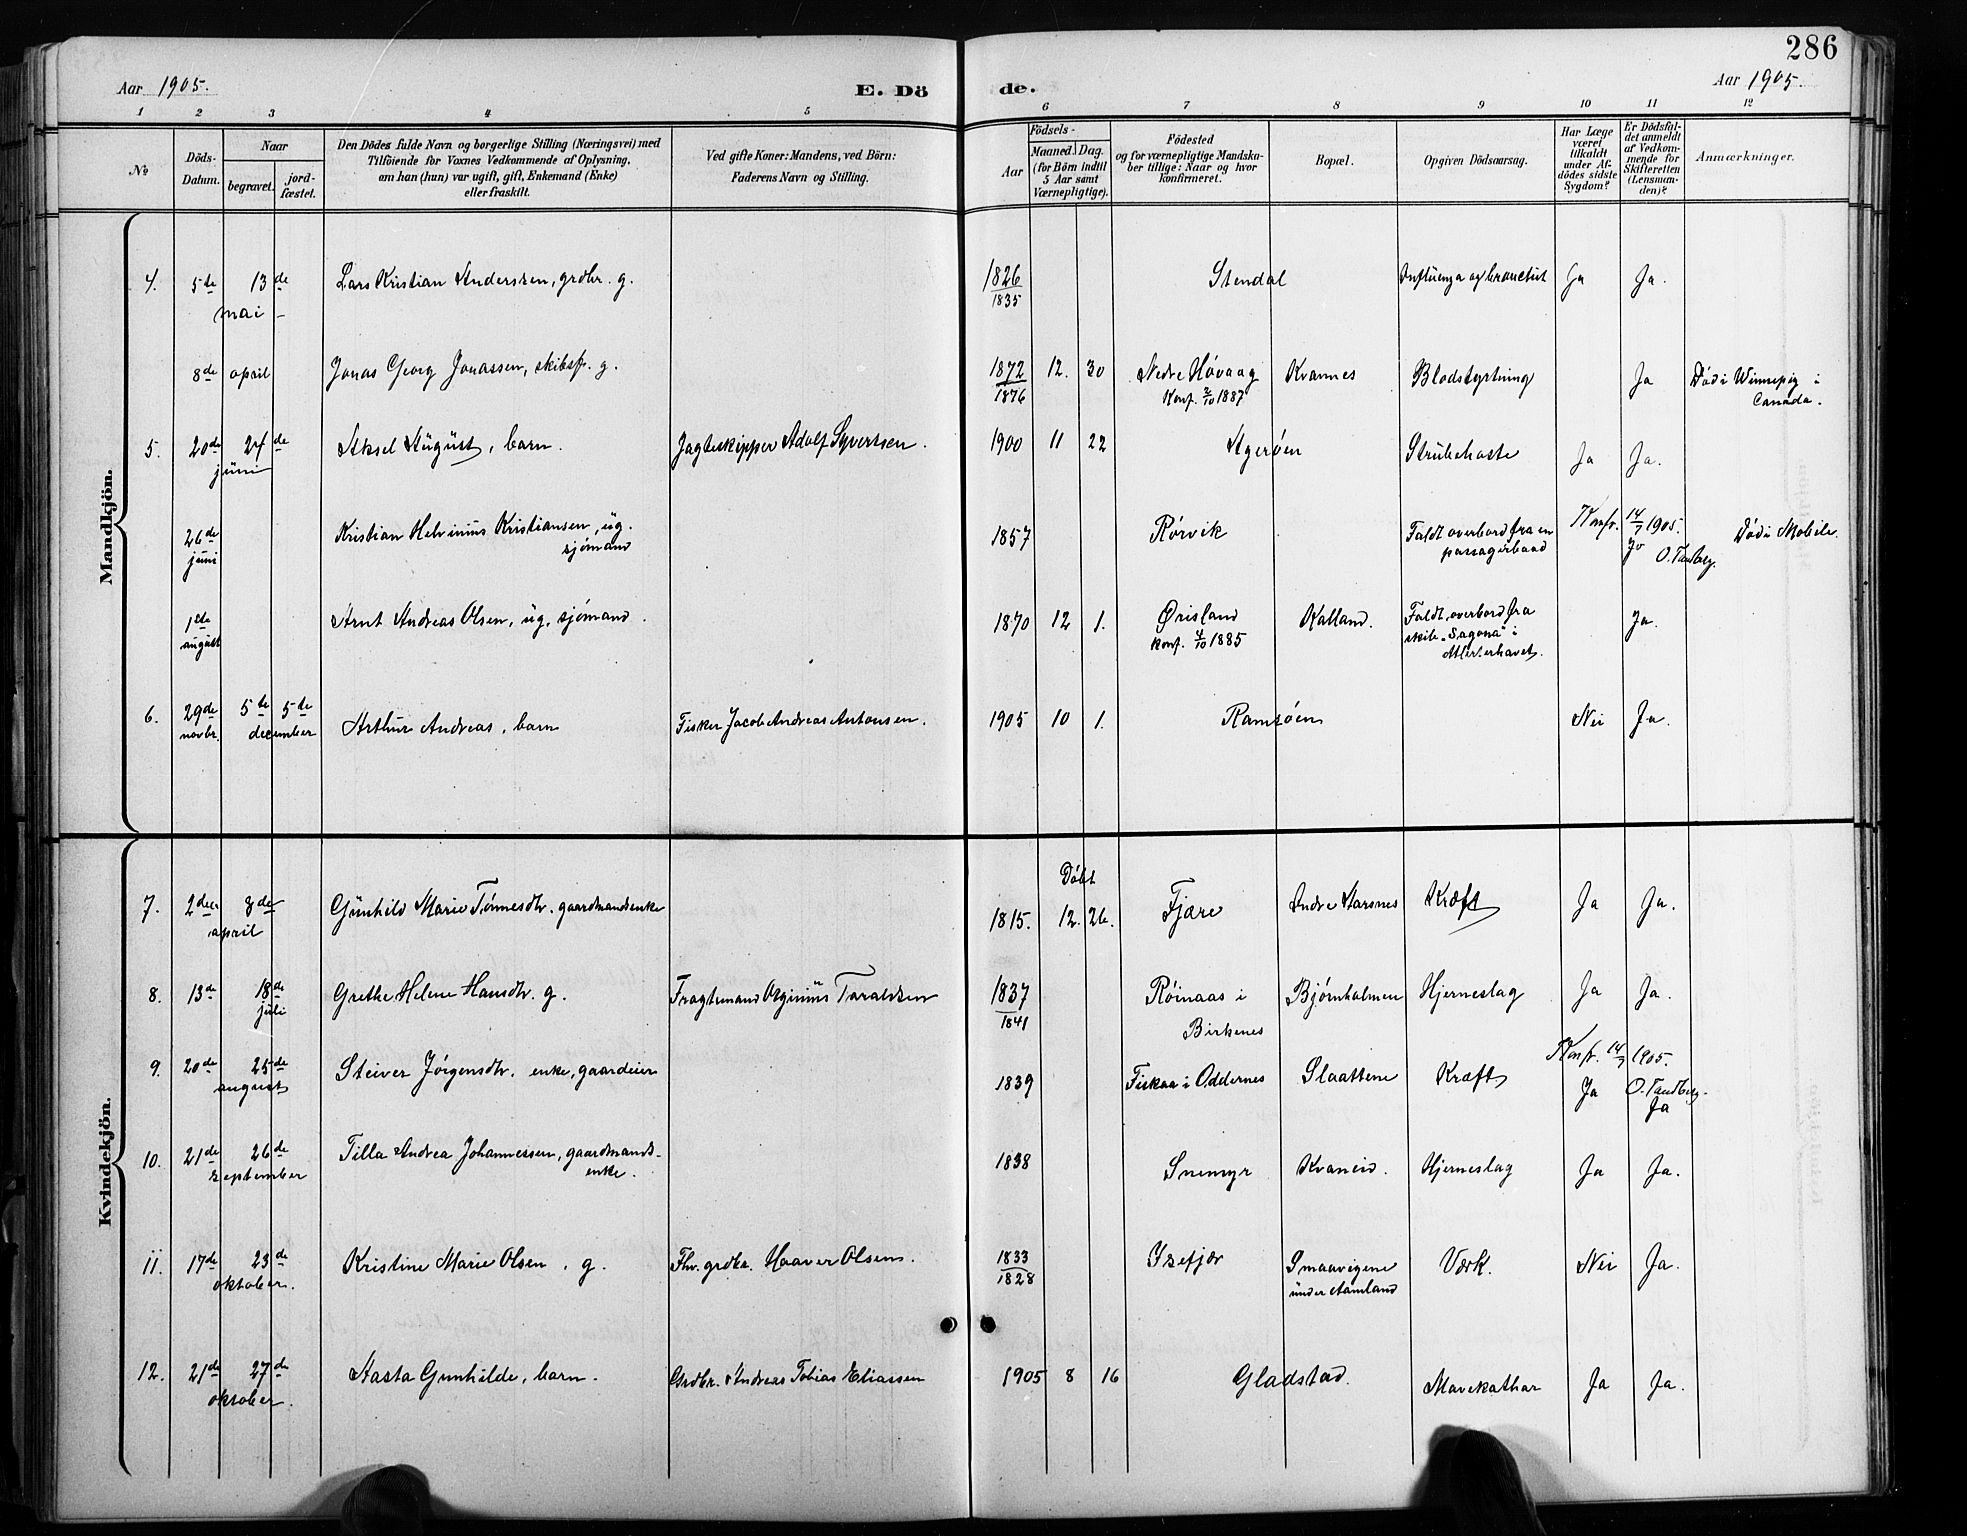 286
Aar 1905.
E. Dö
de.
Aar 1905.
1 2 3 4 5
6 7 8 9 10 11 12
No
Döds-
Datum.
Naar
begravet.
jord-
fæstet.
Den Dödes fulde Navn og borgerlige Stilling (Næringsvei) med
Tilföiende for Voxnes Vedkommende af Oplysning,
om han (hun) var ugift, gift, Enkemand (Enke)
eller fraskilt.
Ved gifte Koner: Mandens, ved Börn:
Faderens Navn og Stilling.
Födsels-
Aar
Maaned. Dag.
(for Börn indtil
5 Aar samt
Værnepligtige).
Födested
og for værnepligtige Mandska-
ber tillige: Naar og hvor
konfirmeret.
Bopæl.
Opgiven Dödsaarsag.
Har Læge
været
tilkaldt
under Af-
dödes sidste
Sygdom?
Er Dödsfal-
det anmeldt
af Vedkom-
mende for
Skifteretten
(Lensman-
den)?
Anmærkninger.
Mandkjön.
4. 5te 13de Lars Kristian Anderssen, grdbr. g. 1826 Stendal Influenza og bronchit Ja Ja.
mai - 1835
8de april Jonas Georg Jonassen, skibsf. g. 1872 12. 30 Nedre Høvaag Kvannes Blodstyrtning Ja Død i Winnepig i
1876 Konf. 2/10 1887 Canada.
5. 20de 24de Aksel August, barn. Jagteskipper Adolf Syvertsen. 1900 11 22 Agerøen Strubehoste Ja Ja.
juni
26de Kristian Helvinius Kristiansen, ug. 1857 Rørvik Faldt overbord fra en Konfr. 14/7 1905. Død i Mobile.
juni sjømand passagerbaad Ja O. Tandberg.
1ste Arnt Andreas Olsen, ug, sjømand. 1870 12 1. Ørisland Kalland. Faldt overbord fra Ja.
august konf. 4/10 1885 skib "Sagona" i
Atlanterhavet.
6. 29de 5te 5te Arthur Andreas, barn Fisker Jacob Andreas Antonsen. 1905 10 1. Ramsøen Nei Ja.
novbr. december
Kvindekjön.
Døbt
7. 2den 8de Gunhild Marie Tønnesdtr. gaardmandsenke 1815. 12. 26. Fjære Indre Aarsnes Kræft Ja Ja.
april
8. 13de 18de Grethe Helene Hansdtr. g. Fragtemand Orginius Taraldsen 1837 Røinaas i Bjørnholmen Hjerneslag Ja Ja.
juli 1841 Birkenes
9. 20de 25de Steiver Jørgensdtr. enke, gaardeier 1839 Fiskaa i Oddernes Slaattene Kræft Konfr. 14/9 1905.
august Ja O. Tandberg.
Ja
10. 21de 26de Tilla Andrea Johannessen, gaardmands- 1838 Snemyr Kvaneid. Hjerneslag Ja Ja.
september enke.
11. 17de 23de Kristine Marie Olsen, g. Fhv. grdbr. Haaver Olsens. 1833 Isefjær Smaavigene Værk. Nei Ja.
oktober. 1828 under Aamland
12. 21de 27de Aasta Gunhilde, barn. Grdbr. Andreas Tobias Eliassen 1905 8 16 Gladstad. Mavekathar Ja Ja.
oktober.